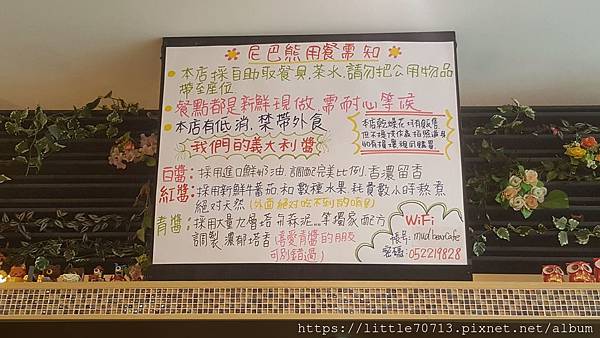 尼巴熊用餐需知
本店採自助取餐具.茶水.請勿把公用物品
帶至座位
餐點都是新鮮現做.需耐心等候
本店有低消.禁帶外食
本店乾燥花只有販售
我們的義大利醬
白醬:採用進口鮮奶油.調配完美比例.香濃留香
紅醬:採用新鮮牛蕃茄和數種水果.耗費數小時熬煮
絕對天然(外面絕對吃不到的唷!)
青醬:採用大量九層塔.开森泥...等獨家配方
調製.濃郁塔香(喜愛青醬的朋友
可別錯過)
WiFi
帳号:mudbearcafe
密碼:052219828
https://little70713.pixnet.net/album